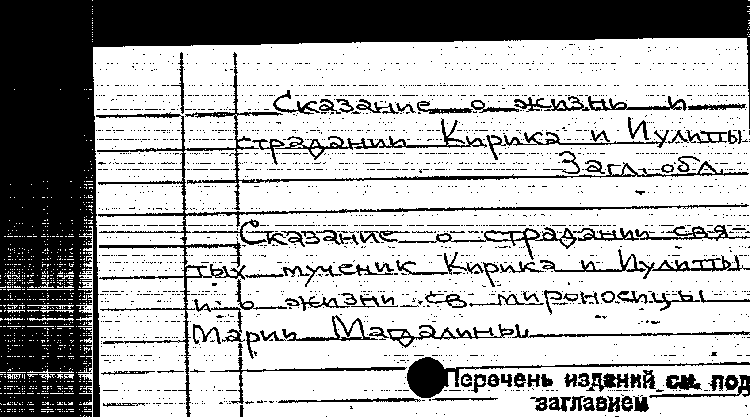 Сказание о жизнь и
страдании Кирика и Иулитты
Загл. обл.
Сказание о страдании свя-
тых мученик Кирика и Иулитты
и о жизни св. мироносицы
Марии Магдалины
Перечень изданий см. под
заглавием